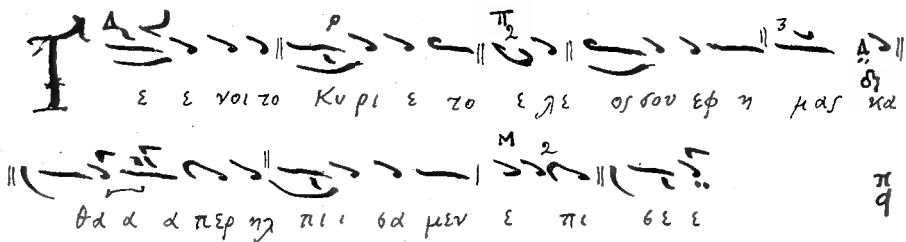 Γ ε ε νοι το Κυ ρι ε το ε λε ος σου εφ η μας κα
θα α α περ ηλ πι ι σα μεν ε πι σε ε